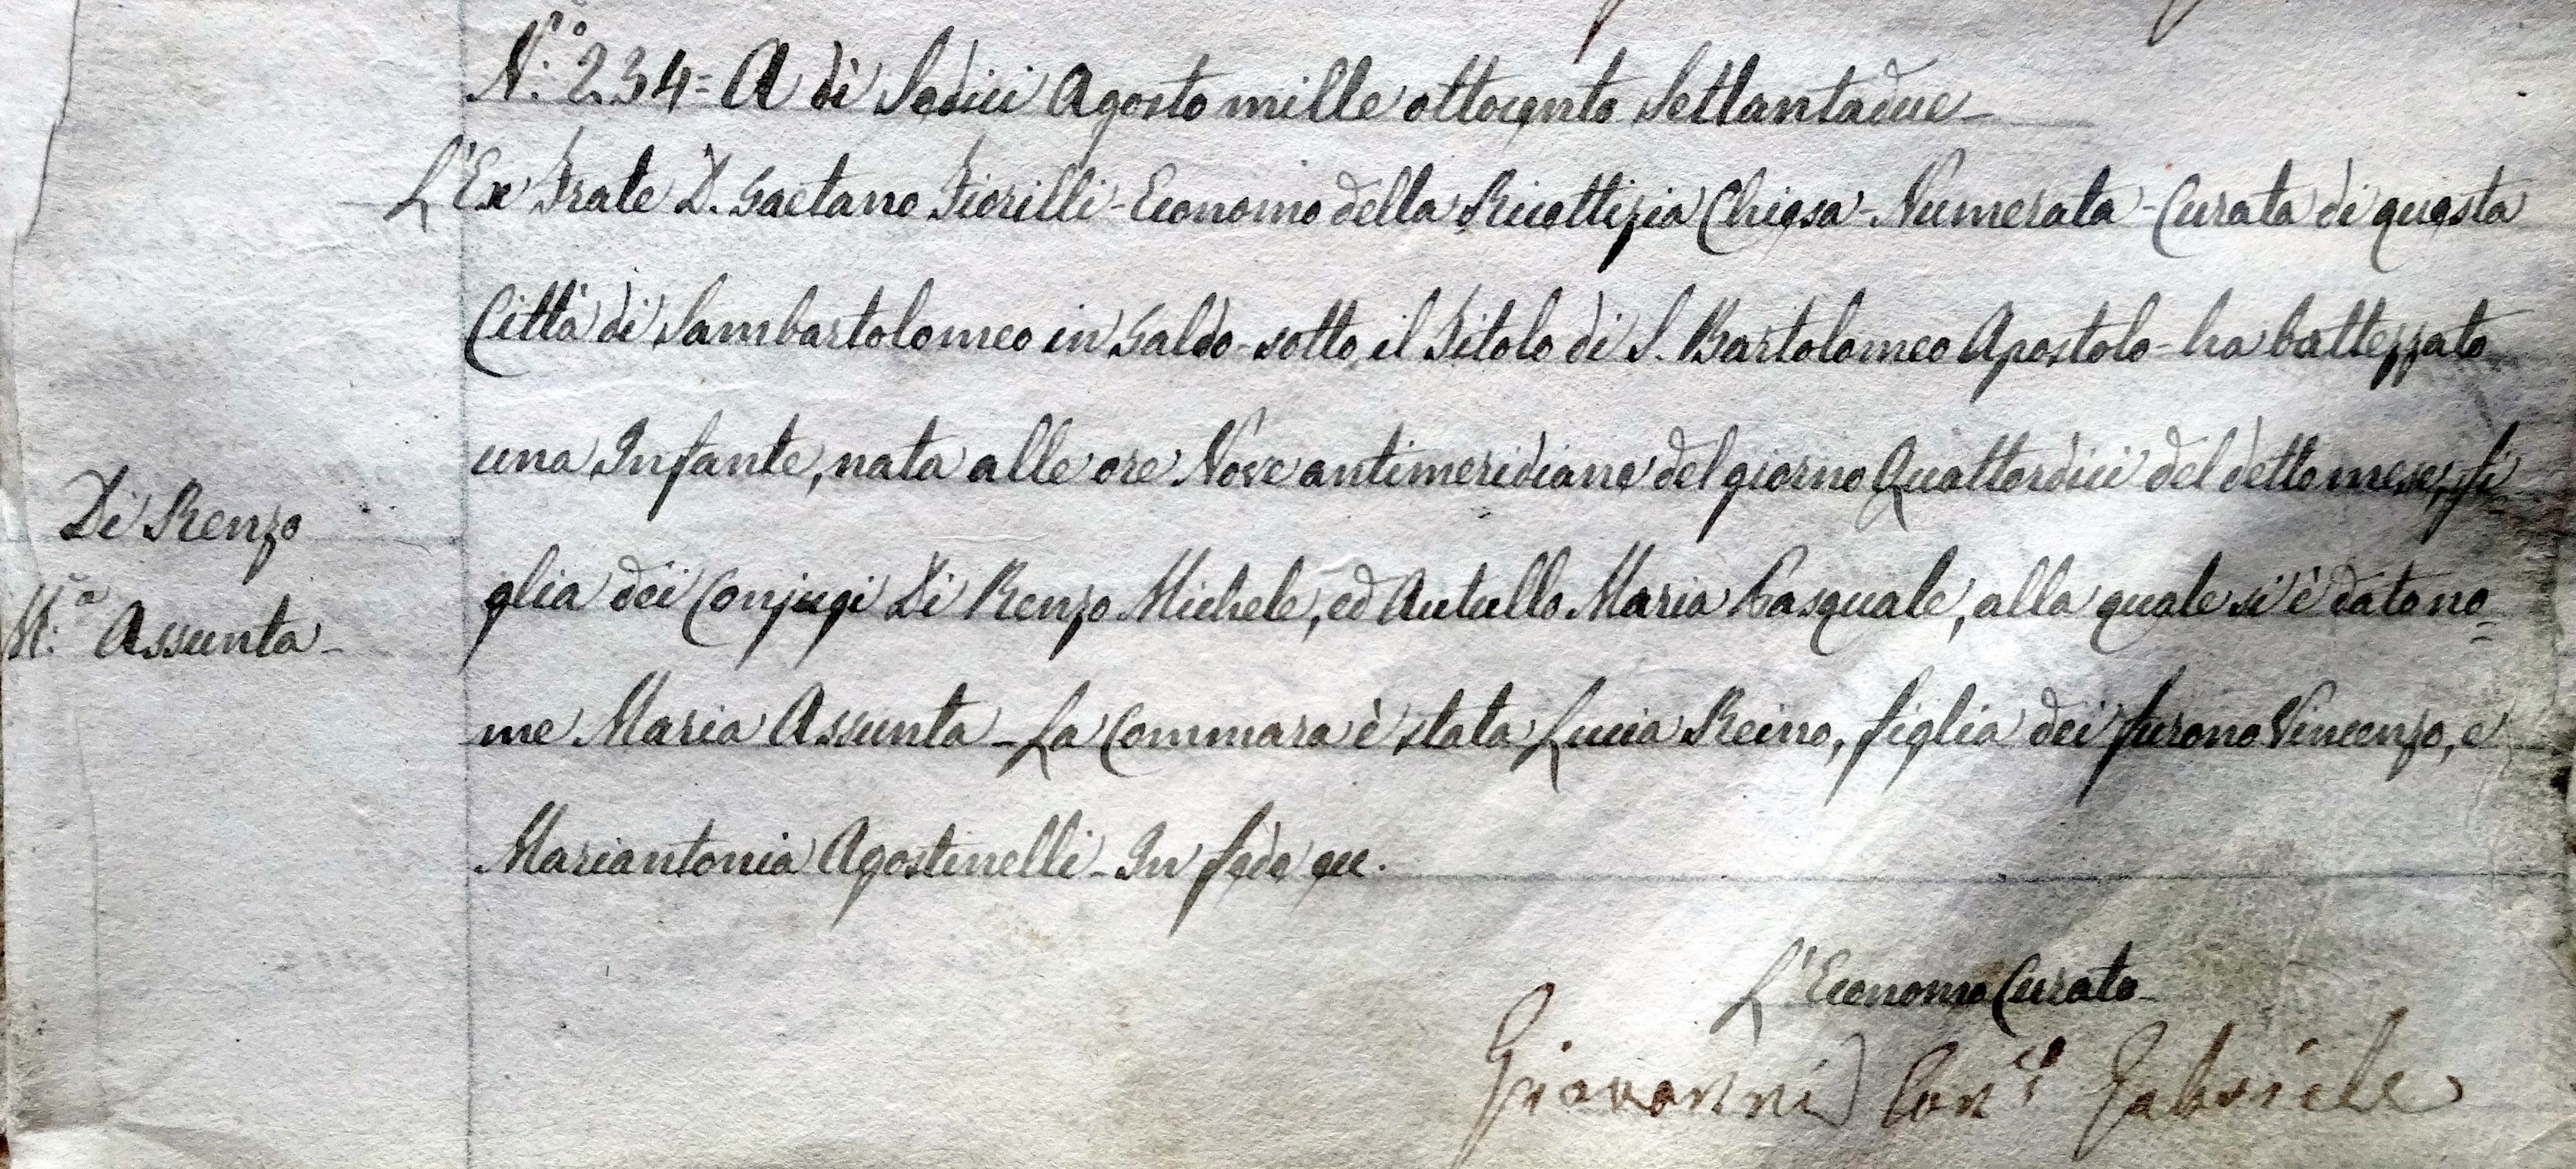 N.º 234 = A dì Sedici Agosto mille ottocento Settantadue -
L'Ex Frate D. Gaetano Fiorilli - Economo della Ricettizia Chiesa - Numerata - Curata di questa
Città di Sambartolomeo in Galdo - sotto il Titolo di S. Bartolomeo Apostolo - ha battezzato
una Infante, nata alle ore Nove antimeridiane del giorno Quattordici del detto mese, fi=
Di Renzo
glia dei Conjugi Di Renzo Michele, ed Autullo Maria Pasquale, alla quale si è dato no=
M.ª Assunta -
me Maria Assunta - La Commara è stata Lucia Reino, figlia dei furono Vincenzo, e
Mariantonia Agostinelli - In fede ec.
L'Economo Curato -
Giovanni Gabriele